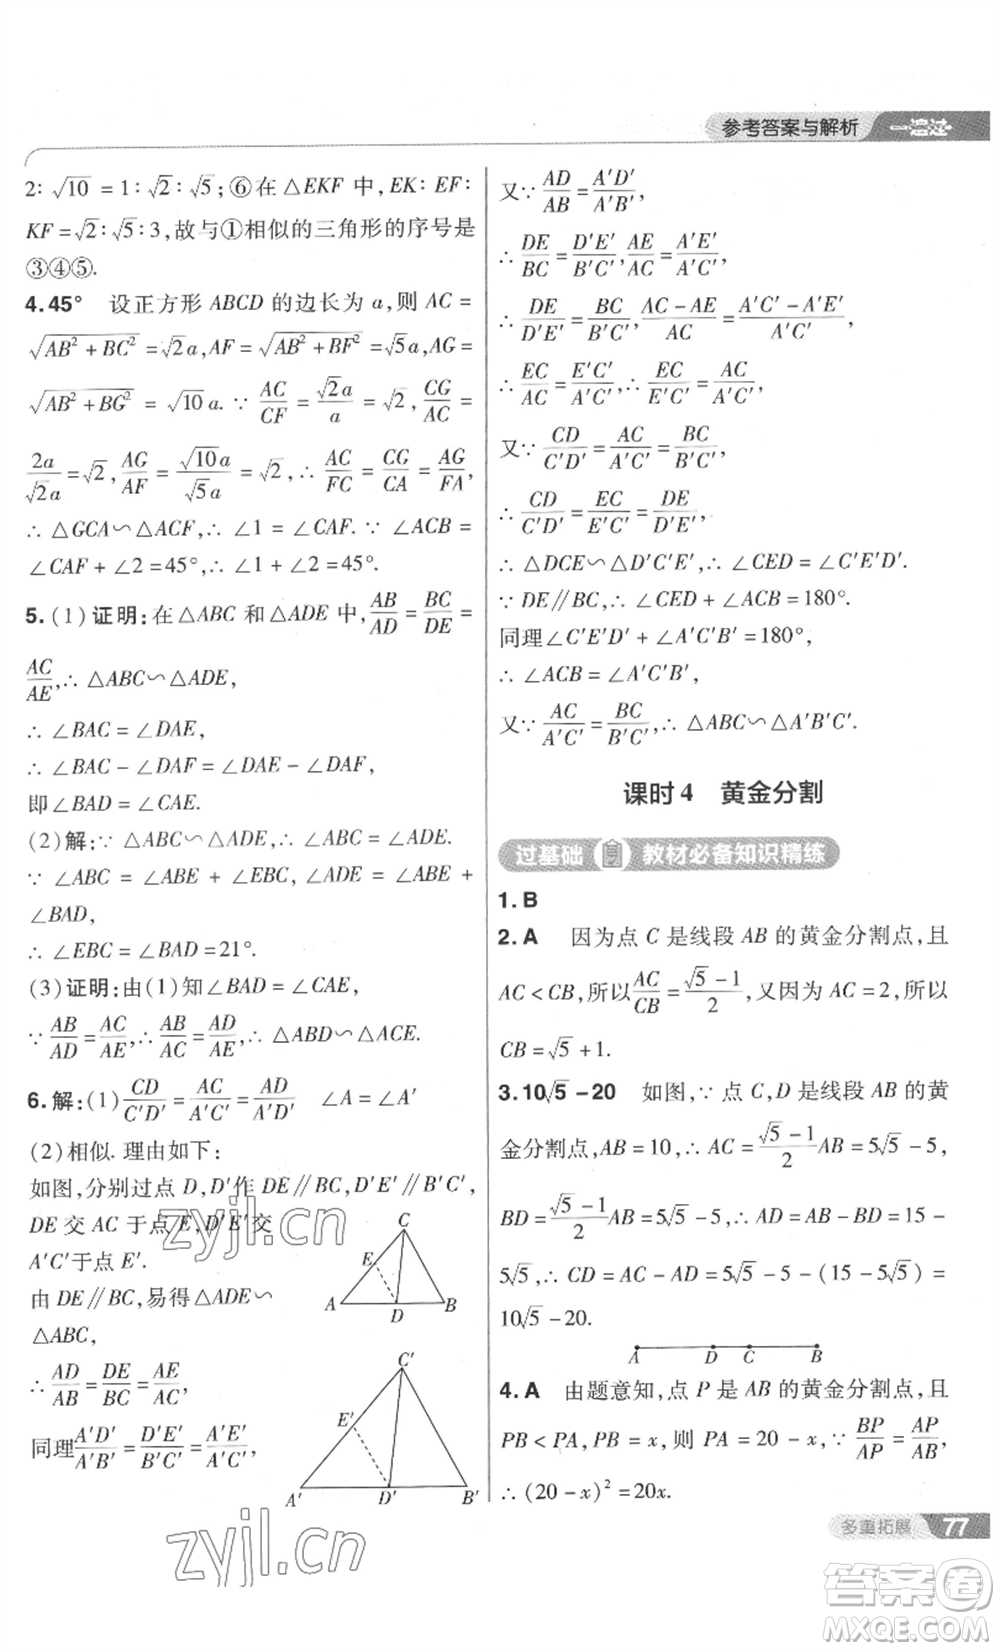 参考答案与解析 一遍过
2∶√10=1∶√2∶√5;⑥在△EKF中,EK∶EF∶
KF=√2∶√5∶3,故与①相似的三角形的序号是
③④⑤.
4.45° 设正方形ABCD的边长为a,则AC=
√(AB²+BC²)=√2a,AF=√(AB²+BF²)=√5a,AG=
√(AB²+BG²)=√10a.∵AC/CF=√2a/a=√2,CG/AC=
2a/√2a=√2,AG/AF=√10a/√5a=√2,∴AC/FC=CG/CA=AG/FA,
∴△GCA∽△ACF,∴∠1=∠CAF.∵∠ACB=
∠CAF+∠2=45°,∴∠1+∠2=45°.
5.(1)证明:在△ABC和△ADE中,AB/AD=BC/DE=
AC/AE,∴△ABC∽△ADE,
∴∠BAC=∠DAE,
∴∠BAC-∠DAF=∠DAE-∠DAF,
即∠BAD=∠CAE.
(2)解:∵△ABC∽△ADE,∴∠ABC=∠ADE.
∵∠ABC=∠ABE+∠EBC,∠ADE=∠ABE+
∠BAD,
∴∠EBC=∠BAD=21°.
(3)证明:由(1)知∠BAD=∠CAE,
∵AB/AD=AC/AE,∴AB/AC=AD/AE,∴△ABD∽△ACE.
6.解:(1)CD/C′D′=AC/A′C′=AD/A′D′ ∠A=∠A′
(2)相似.理由如下:
如图,分别过点D,D′作DE∥BC,D′E′∥B′C′,
DE交AC于点E,D′E′交
A′C′于点E′.
由DE∥BC,易得△ADE∽
△ABC,
∴AD/AB=DE/BC=AE/AC,
同理A′D′/A′B′=D′E′/B′C′=A′E′/A′C′,
C
E
A D B
C′
E′
A′ D′ B′
又∵AD/AB=A′D′/A′B′,
∴DE/BC=D′E′/B′C′,AE/AC=A′E′/A′C′,
∴DE/D′E′=BC/B′C′,(AC-AE)/AC=(A′C′-A′E′)/A′C′,
∴EC/AC=E′C′/A′C′,∴EC/E′C′=AC/A′C′,
又∵CD/C′D′=AC/A′C′=BC/B′C′,
∴CD/C′D′=EC/E′C′=DE/D′E′,
∴△DCE∽△D′C′E′,∴∠CED=∠C′E′D′.
∵DE∥BC,∴∠CED+∠ACB=180°.
同理∠C′E′D′+∠A′C′B′=180°,
∴∠ACB=∠A′C′B′,
又∵AC/A′C′=BC/B′C′,∴△ABC∽△A′B′C′.
课时4 黄金分割
过基础 教材必备知识精练
1.B
2.A 因为点C是线段AB的黄金分割点,且
AC<CB,所以AC/CB=(√5-1)/2,又因为AC=2,所以
CB=√5+1.
3.10√5-20 如图,∵点C,D是线段AB的黄
金分割点,AB=10,∴AC=(√5-1)/2AB=5√5-5,
BD=(√5-1)/2AB=5√5-5,∴AD=AB-BD=15-
5√5,∴CD=AC-AD=5√5-5-(15-5√5)=
10√5-20.
A D C B
4.A 由题意知,点P是AB的黄金分割点,且
PB<PA,PB=x,则PA=20-x,∵BP/AP=AP/AB,
∴(20-x)²=20x.
多重拓展 77
zyjl.cn
zyjl.cn
答案卷
MXQE.COM